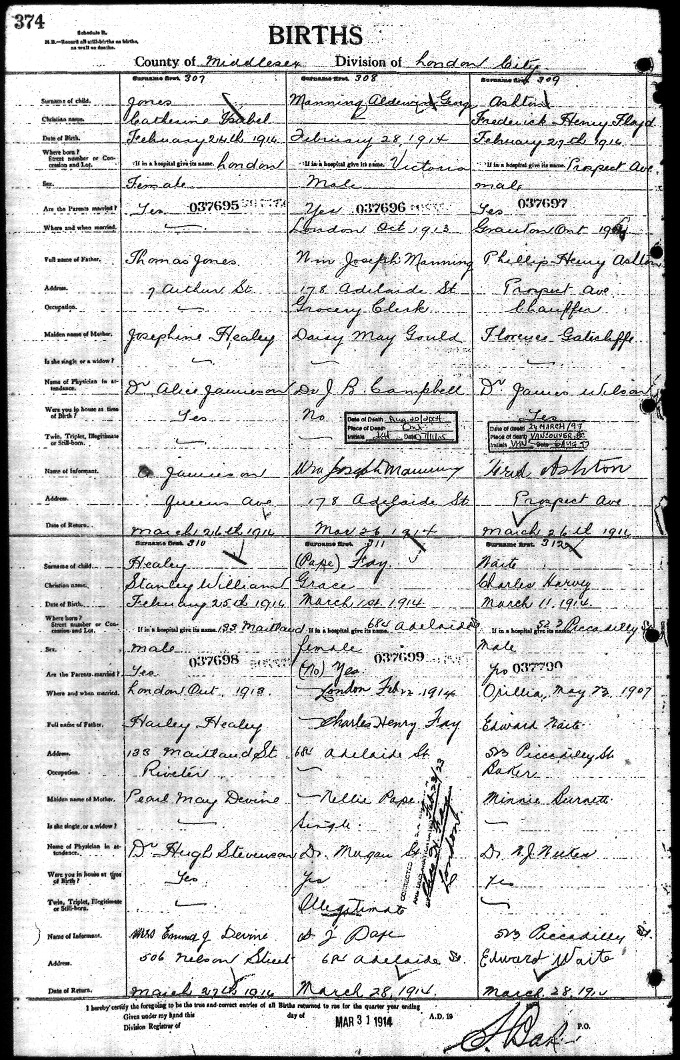 374
Schedule B.
N.B.—Record all still-births as births, as well as deaths.
BIRTHS
County of Middlesex Division of London City
Surname first. 307 Surname first. 308 Surname first. 309
Surname of child. Jones Manning Ashton
Christian name. Catherine Isabel Frederick Henry Floyd
Date of Birth. February 24th 1914 February 28, 1914 February 27th 1914
Where born? Street number or Concession and Lot. If in a hospital give its name. London If in a hospital give its name. Victoria If in a hospital give its name. Prospect Ave
Sex. Female Male male
Are the Parents married? Yes 037695 Yes 037696 Yes 037697
Where and when married. — London Oct 1913 Ont
Full name of Father. Thomas Jones Wm Joseph Manning Phillip Henry Ashton
Address. 9 Arthur St. 178 Adelaide St Prospect Ave
Occupation. — Grocery Clerk Chauffer
Maiden name of Mother. Josephine Healey Daisy May Gould Florence Gatecliffe
Is she single or a widow? — — —
Name of Physician in attendance. Dr Alice Jamieson Dr J. B. Campbell Dr James Wilson
Were you in house at time of Birth? Yes No Yes
Date of Death Aug 20/2004
Place of Death Ont
Initials Date
Date of Death 24 MARCH/97
Place of Death VANCOUVER, BC
Initials Date
Twin, Triplet, Illegitimate or Still-born. — —
Name of Informant. A Jamieson Wm Joseph Manning Fred Ashton
Address. Queens Ave 178 Adelaide St Prospect Ave
Date of Return. March 26th 1914 Mar 26 1914 March 26th 1914
Surname first. 310 Surname first. 311 Surname first. 312
Surname of child. Healey (Pape) Fay Waite
Christian name. Stanley William Grace Charles Harvey
Date of Birth. February 25th 1914 March 1st 1914 March 11, 1914
Where born? Street number or Concession and Lot. If in a hospital give its name. 133 Maitland If in a hospital give its name. 684 Adelaide St If in a hospital give its name. 523 Piccadilly St
Sex. male female Male
Are the Parents married? Yes 037698 (No) Yes 037699 yes 037700
Where and when married. London Ont. 1913 London Feb 1914 Orillia, May 1907
Full name of Father. Harley Healey Charles Henry Fay Edward Waite
Address. 133 Maitland St. 684 Adelaide St 523 Piccadilley St
Occupation. Riveter — Baker
Maiden name of Mother. Pearl May Devine Nellie Pape Minnie Burnett
Is she single or a widow? — Single —
Name of Physician in attendance. Dr Hugh Stevenson Dr. Morgan St Dr.
Were you in house at time of Birth? Yes Yes yes
Twin, Triplet, Illegitimate or Still-born. — Illegitimate —
Feb 23/23
London
Name of Informant. Mrs Emma J Devine Pape 523 Piccadilley St.
Address. 506 Nelson Street 684 Adelaide St. Edward Waite
Date of Return. March 27th 1914 March 28, 1914 March 28, 191
I hereby certify the foregoing to be the true and correct entries of all Births returned to me for the quarter year ending
Given under my hand this day of MAR 31 1914 A.D. 19
Division Registrar of P.O.